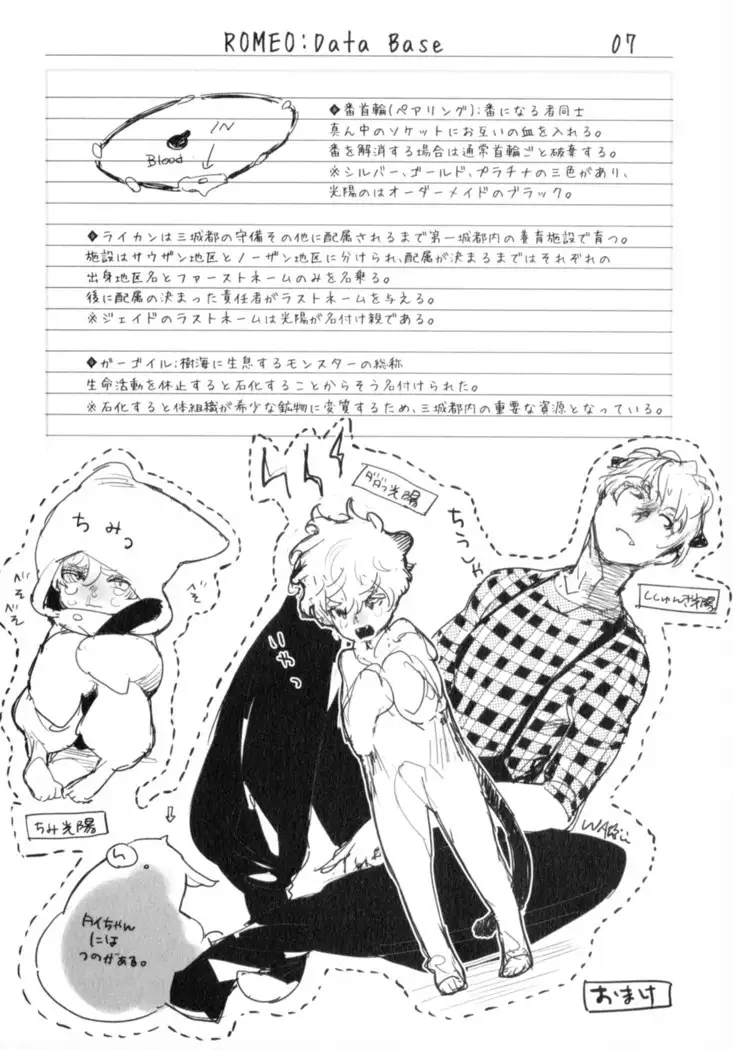 ROMEO:Data Base
07
Blood
IN
◆番首輪(ペアリング):番になる者同士
真ん中のソケットにお互いの血を入れる。
番を解消する場合は通常首輪ごと破棄する。
※シルバー、ゴールド、プラチナの三色があり、
光陽のはオーダーメイドのブラック。
◆ライカンは三城都の守備その他に配属されるまで第一城都内の養育施設で育つ。
施設はサウザン地区とノーザン地区に分けられ、配属が決まるまではそれぞれの
出身地区名とファーストネームのみを名乗る。
後に配属の決まった責任者がラストネームを与える。
※ジェイドのラストネームは光陽が名付け親である。
◆ガーゴイル:樹海に生息するモンスターの総称
生命活動を休止すると石化することからそう名付けられた。
※石化すると体組織が希少な鉱物に変質するため、三城都内の重要な資源となっている。
ちみっ
べそ
べそ
ちみ光陽
光陽
いやっ
ししゅんき光陽
タイちゃん
には
つのがある。
おまけ